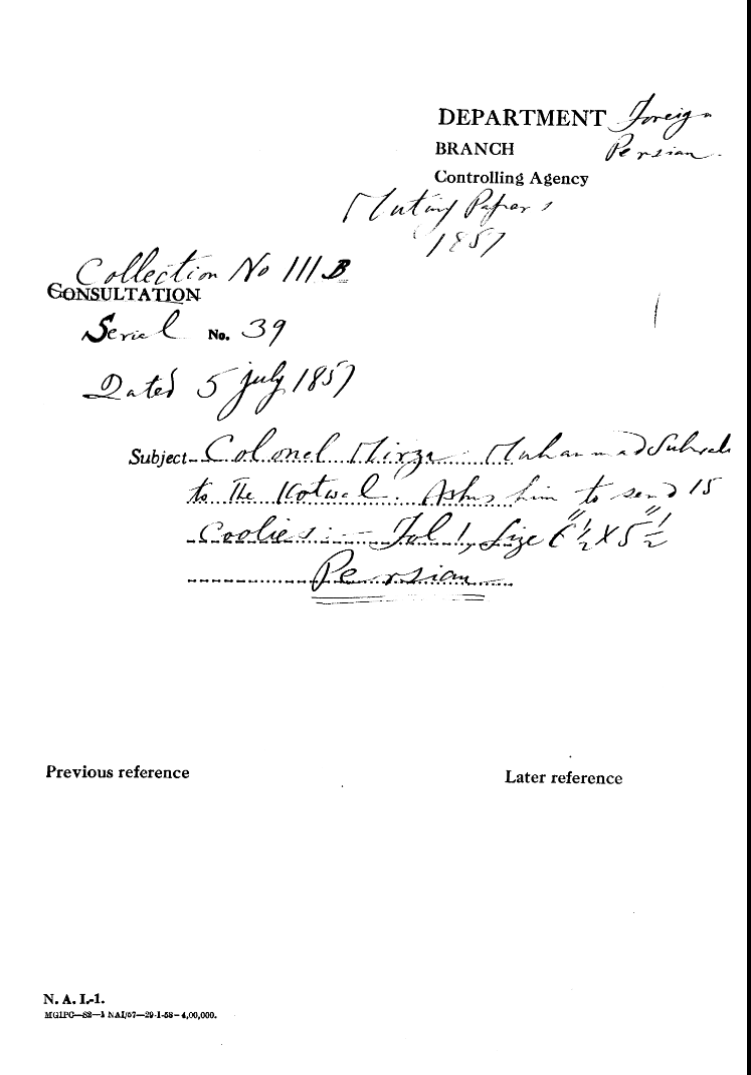 DEPARTMENT Foreign
BRANCH Persian.
Controlling Agency
Mutiny Papers
1857
Collection No 111 B
CONSULTATION
Serial No. 39
Dated 5 July 1857
Subject Colonel Mirza Muhammad
to the Kotwal. Asks him to send 15
Coolies :— Fol 1, Size 6"½ X 5"½
Persian
Previous reference
Later reference
N. A. I.-1.
MGIPC—S2—1 NAI/57—29-1-58—4,00,000.